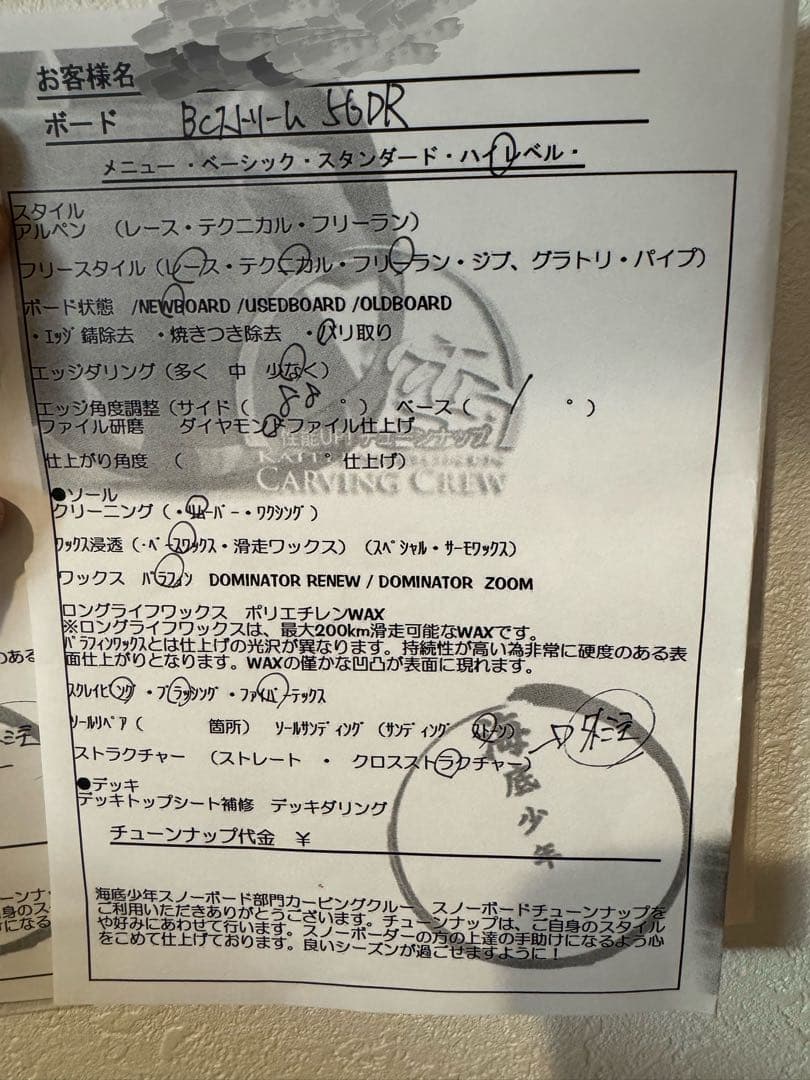 お客様名
ボード BCストリーム 56DR
メニュー・ベーシック・スタンダード・ハイレベル・
スタイル
アルペン （レース・テクニカル・フリーラン）
フリースタイル（レース・テクニカル・フリーラン・ジブ、グラトリ・パイプ）
ボード状態 /NEWBOARD /USEDBOARD /OLDBOARD
・ｴｯｼﾞ 錆除去 ・焼きつき除去 ・バリ取り
エッジダリング（多く 中 少なく）
エッジ角度調整（サイド（ 88 °） ベース（ 1 °）
ファイル研磨 ダイヤモンドファイル仕上げ
性能UP! チューンナップ
仕上がり角度 （ °仕上げ）
CARVING CREW
●ソール
クリーニング（・ﾘﾑｰﾊﾞｰ・ﾜｸｼﾝｸﾞ）
ﾜｯｸｽ浸透（・ﾍﾞｰｽﾜｯｸｽ・滑走ワックス）（ｽﾍﾟｼｬﾙ・サーモワックス）
ワックス ﾊﾟﾗﾌｨﾝ DOMINATOR RENEW / DOMINATOR ZOOM
ロングライフワックス ポリエチレンWAX
※ロングライフワックスは、最大200km滑走可能なWAXです。
ﾊﾟﾗﾌｨﾝﾜｯｸｽとは仕上げの光沢が異なります。持続性が高い為非常に硬度のある表
面仕上がりとなります。WAXの僅かな凹凸が表面に現れます。
ｽｸﾚｲﾋﾟﾝｸﾞ・ﾌﾞﾗｯｼﾝｸﾞ・ﾌｧｲﾊﾞｰﾃｯｸｽ
ｿｰﾙﾘﾍﾟｱ（ 箇所） ｿｰﾙｻﾝﾃﾞｨﾝｸﾞ（ｻﾝﾃﾞｨﾝｸﾞ ｽﾄｰﾝ）→外注
ストラクチャー （ストレート ・ クロスストラクチャー）
海底少年
●デッキ
デッキトップシート補修 デッキダリング
チューンナップ代金 ￥
海底少年スノーボード部門カービングクルー スノーボードチューンナップを
ご利用いただきありがとうございます。チューンナップは、ご自身のスタイル
や好みにあわせて行います。スノーボーダーの方の上達の手助けになるよう心
をこめて仕上げております。良いシーズンが過ごせますように！